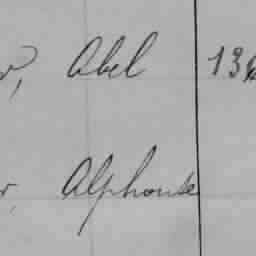 r, Abel 136
r, Alphonse